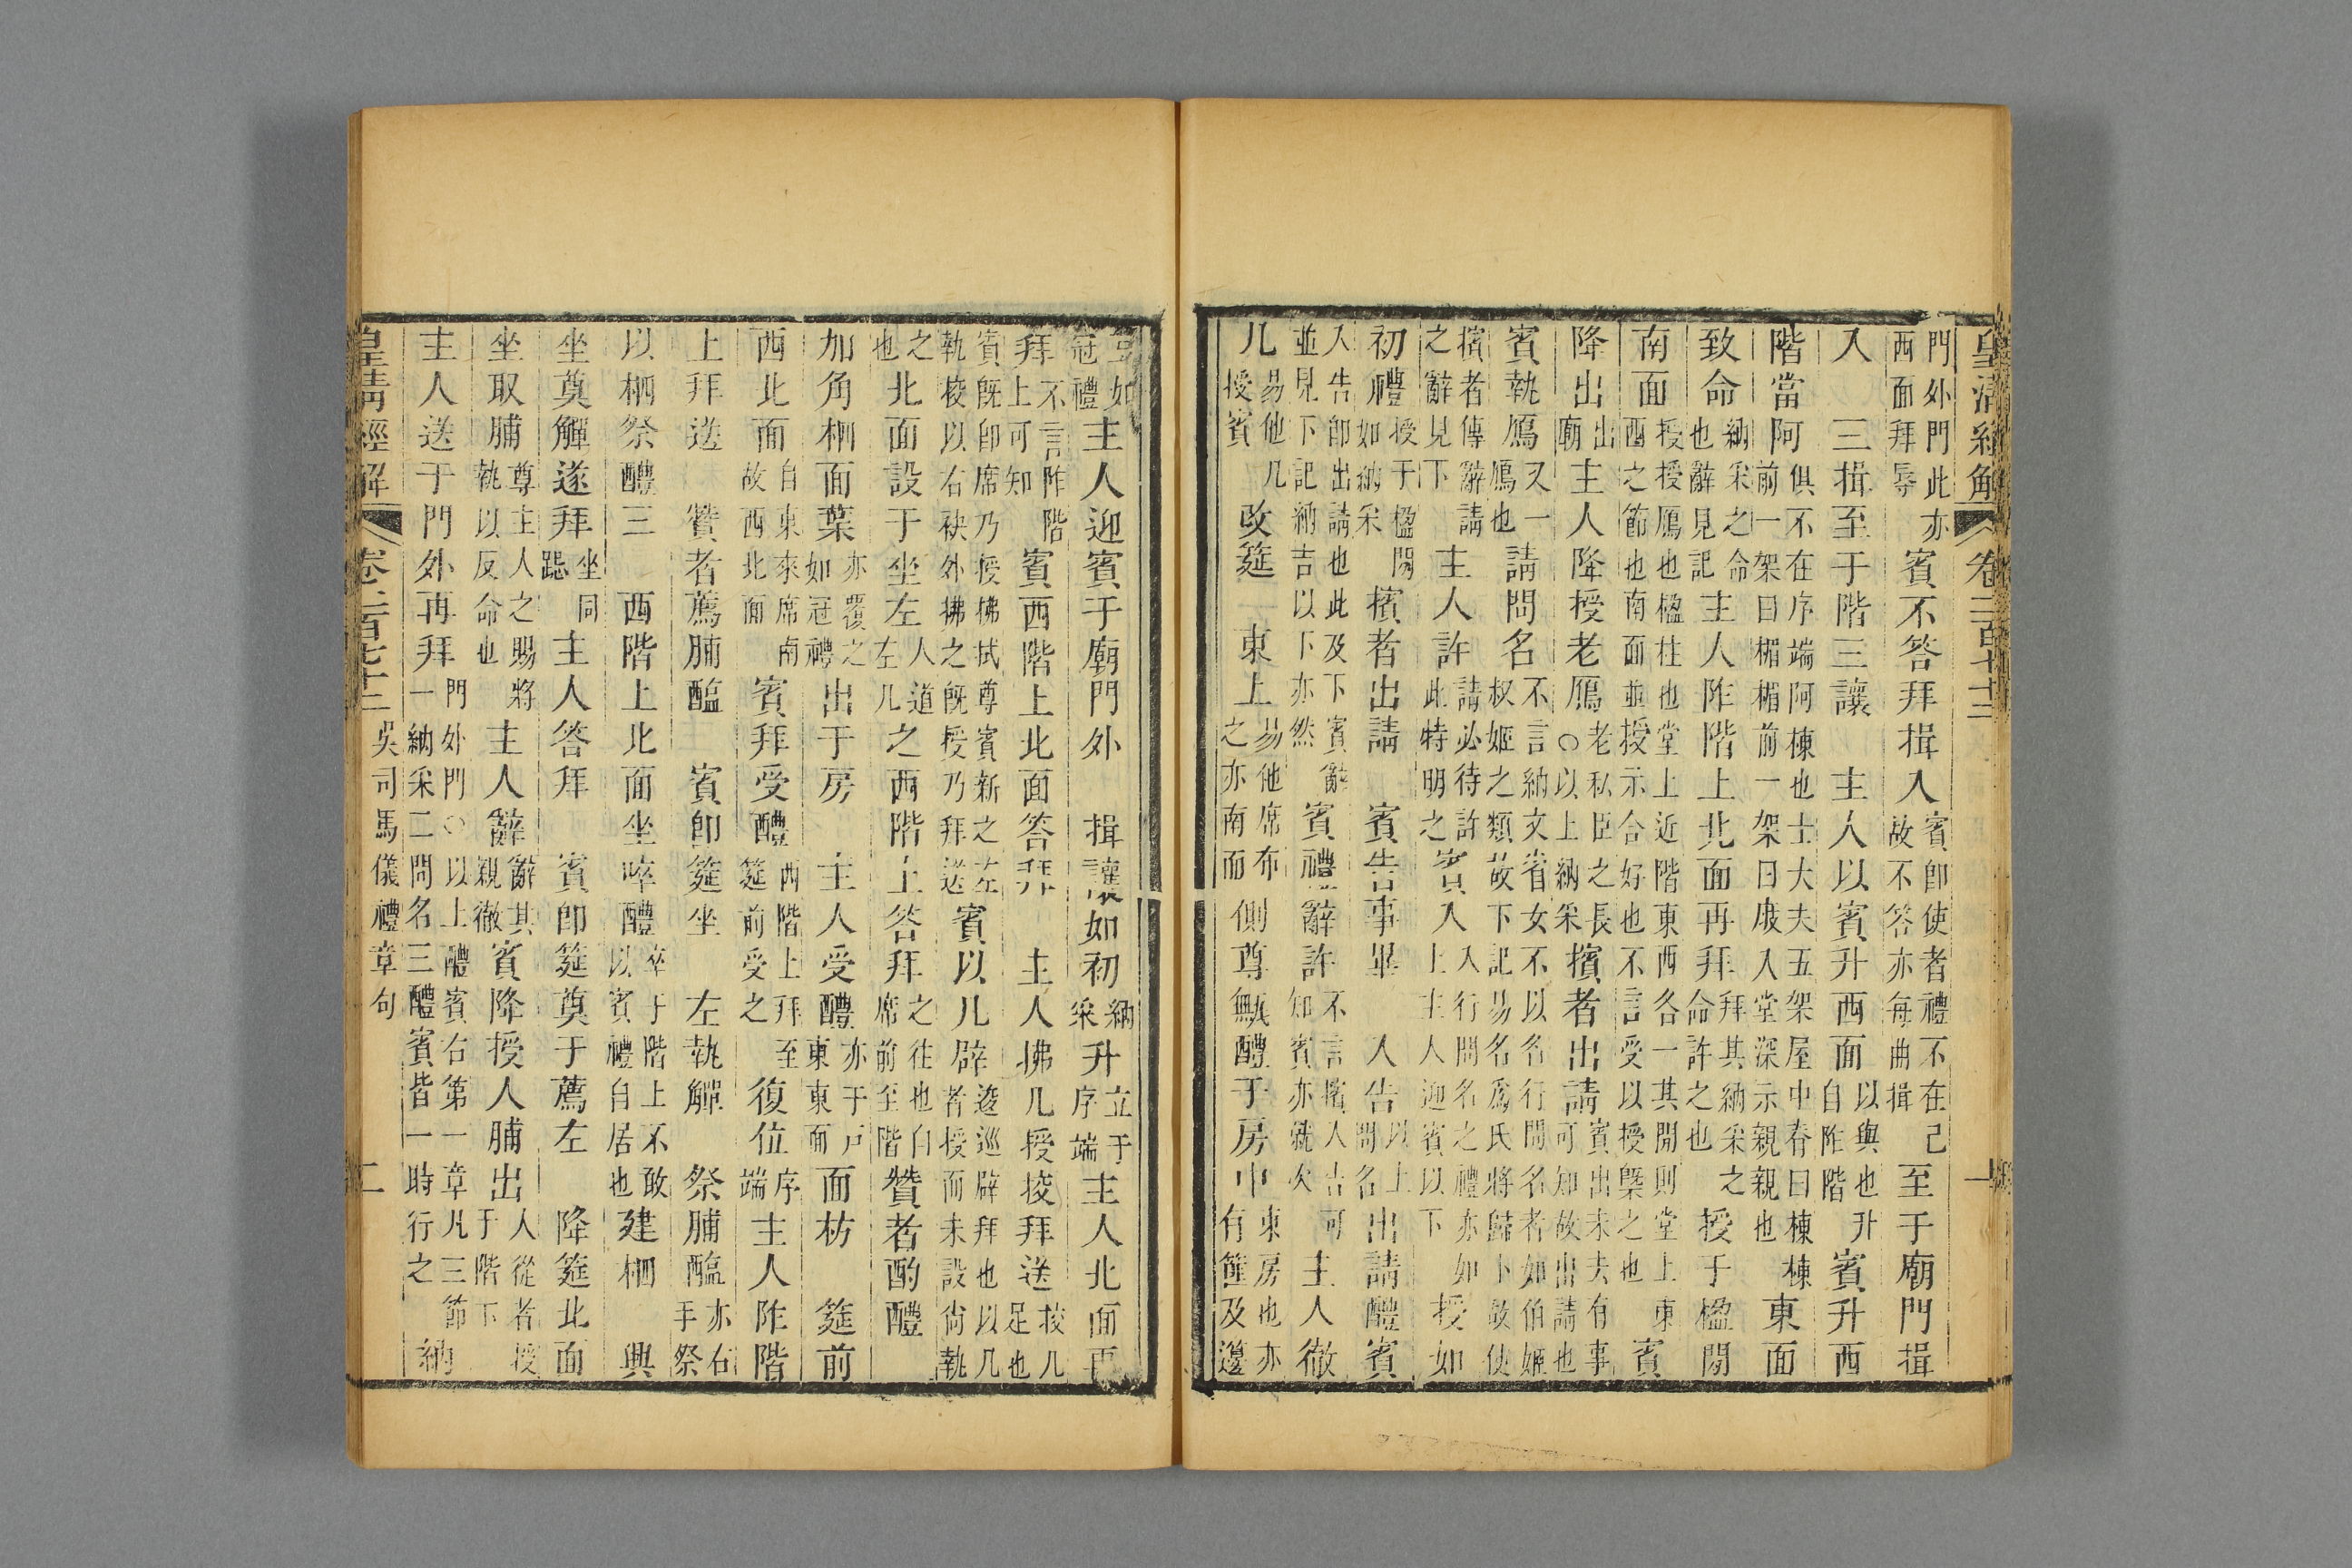 皇清經解 卷二百七十三 一
門外門此亦西面拜辱賓不答拜揖入賓即使者禮不在己故不答亦每曲揖至于廟門揖
入 三揖至于階三讓 主人以賓升西面以與也升自阼階賓升西
階當阿俱不在序端阿棟也士大夫五架屋中脊曰棟棟前一架曰楣楣前一架曰庪入堂深示親親也東面
致命納采之命也辭見記主人阼階上北面再拜拜其納采之命許之也授于楹閒
南面授授鴈也楹柱也堂上近階東西各一其閒則堂上東西之節也南面並授示合好也不言受以授槩之也賓
降出出廟主人降授老鴈老私臣之長○以上納采擯者出請賓出未去有事可知故出請也
賓執鴈又一鴈也請問名不言納文省女不以名行問名者如伯姬叔姬之類故下記易名爲氏將歸卜敢使
擯者傳辭請之辭見下主人許請必待許此特明之賓入入行問名之禮亦如上主人迎賓以下授如
初禮授于楹閒如納采擯者出請 賓告事畢 入告以上問名出請醴賓
入告即出請也此及下賓辭並見下記納吉以下亦然賓禮辭許不言擯人告可知賓亦就次主人徹
几易他几授賓改筵 東上易他席布之亦南面側尊甒醴于房中東房也亦有篚及籩
豆如冠禮主人迎賓于廟門外 揖讓如初納采升立于序端主人北面再
拜不言阼階上可知賓西階上北面答拜 主人拂几授挍拜送挍几足也
賓既即席乃授拂拭尊賓新之左執挍以右袂外拂之既授乃拜送賓以几辟逡巡辟拜也以几者授而未設尚執
之也北面設于坐左人道左几之西階上答拜之往也自席前至階贊者酌醴
加角柶面葉亦覆之如冠禮出于房 主人受醴亦于戶東東面面枋 筵前
西北面自東來席南故西北面賓拜受醴西階上拜至筵前受之復位序端主人阼階
上拜送 贊者薦脯醢 賓即筵坐 左執觶 祭脯醢亦右手祭
以柶祭醴三 西階上北面坐啐醴卒于階上不敢以賓禮自居也建柶 興
坐奠觶遂拜坐同跽主人答拜 賓即筵奠于薦左 降筵北面
坐取脯尊主人之賜將執以反命也主人辭辭其親徹賓降授人脯出人從者授于階下
主人送于門外再拜門外門○以上醴賓右第一章凡三節一納采二問名三醴賓皆一時行之納
皇清經解 卷二百七十三 吳司馬儀禮章句 二